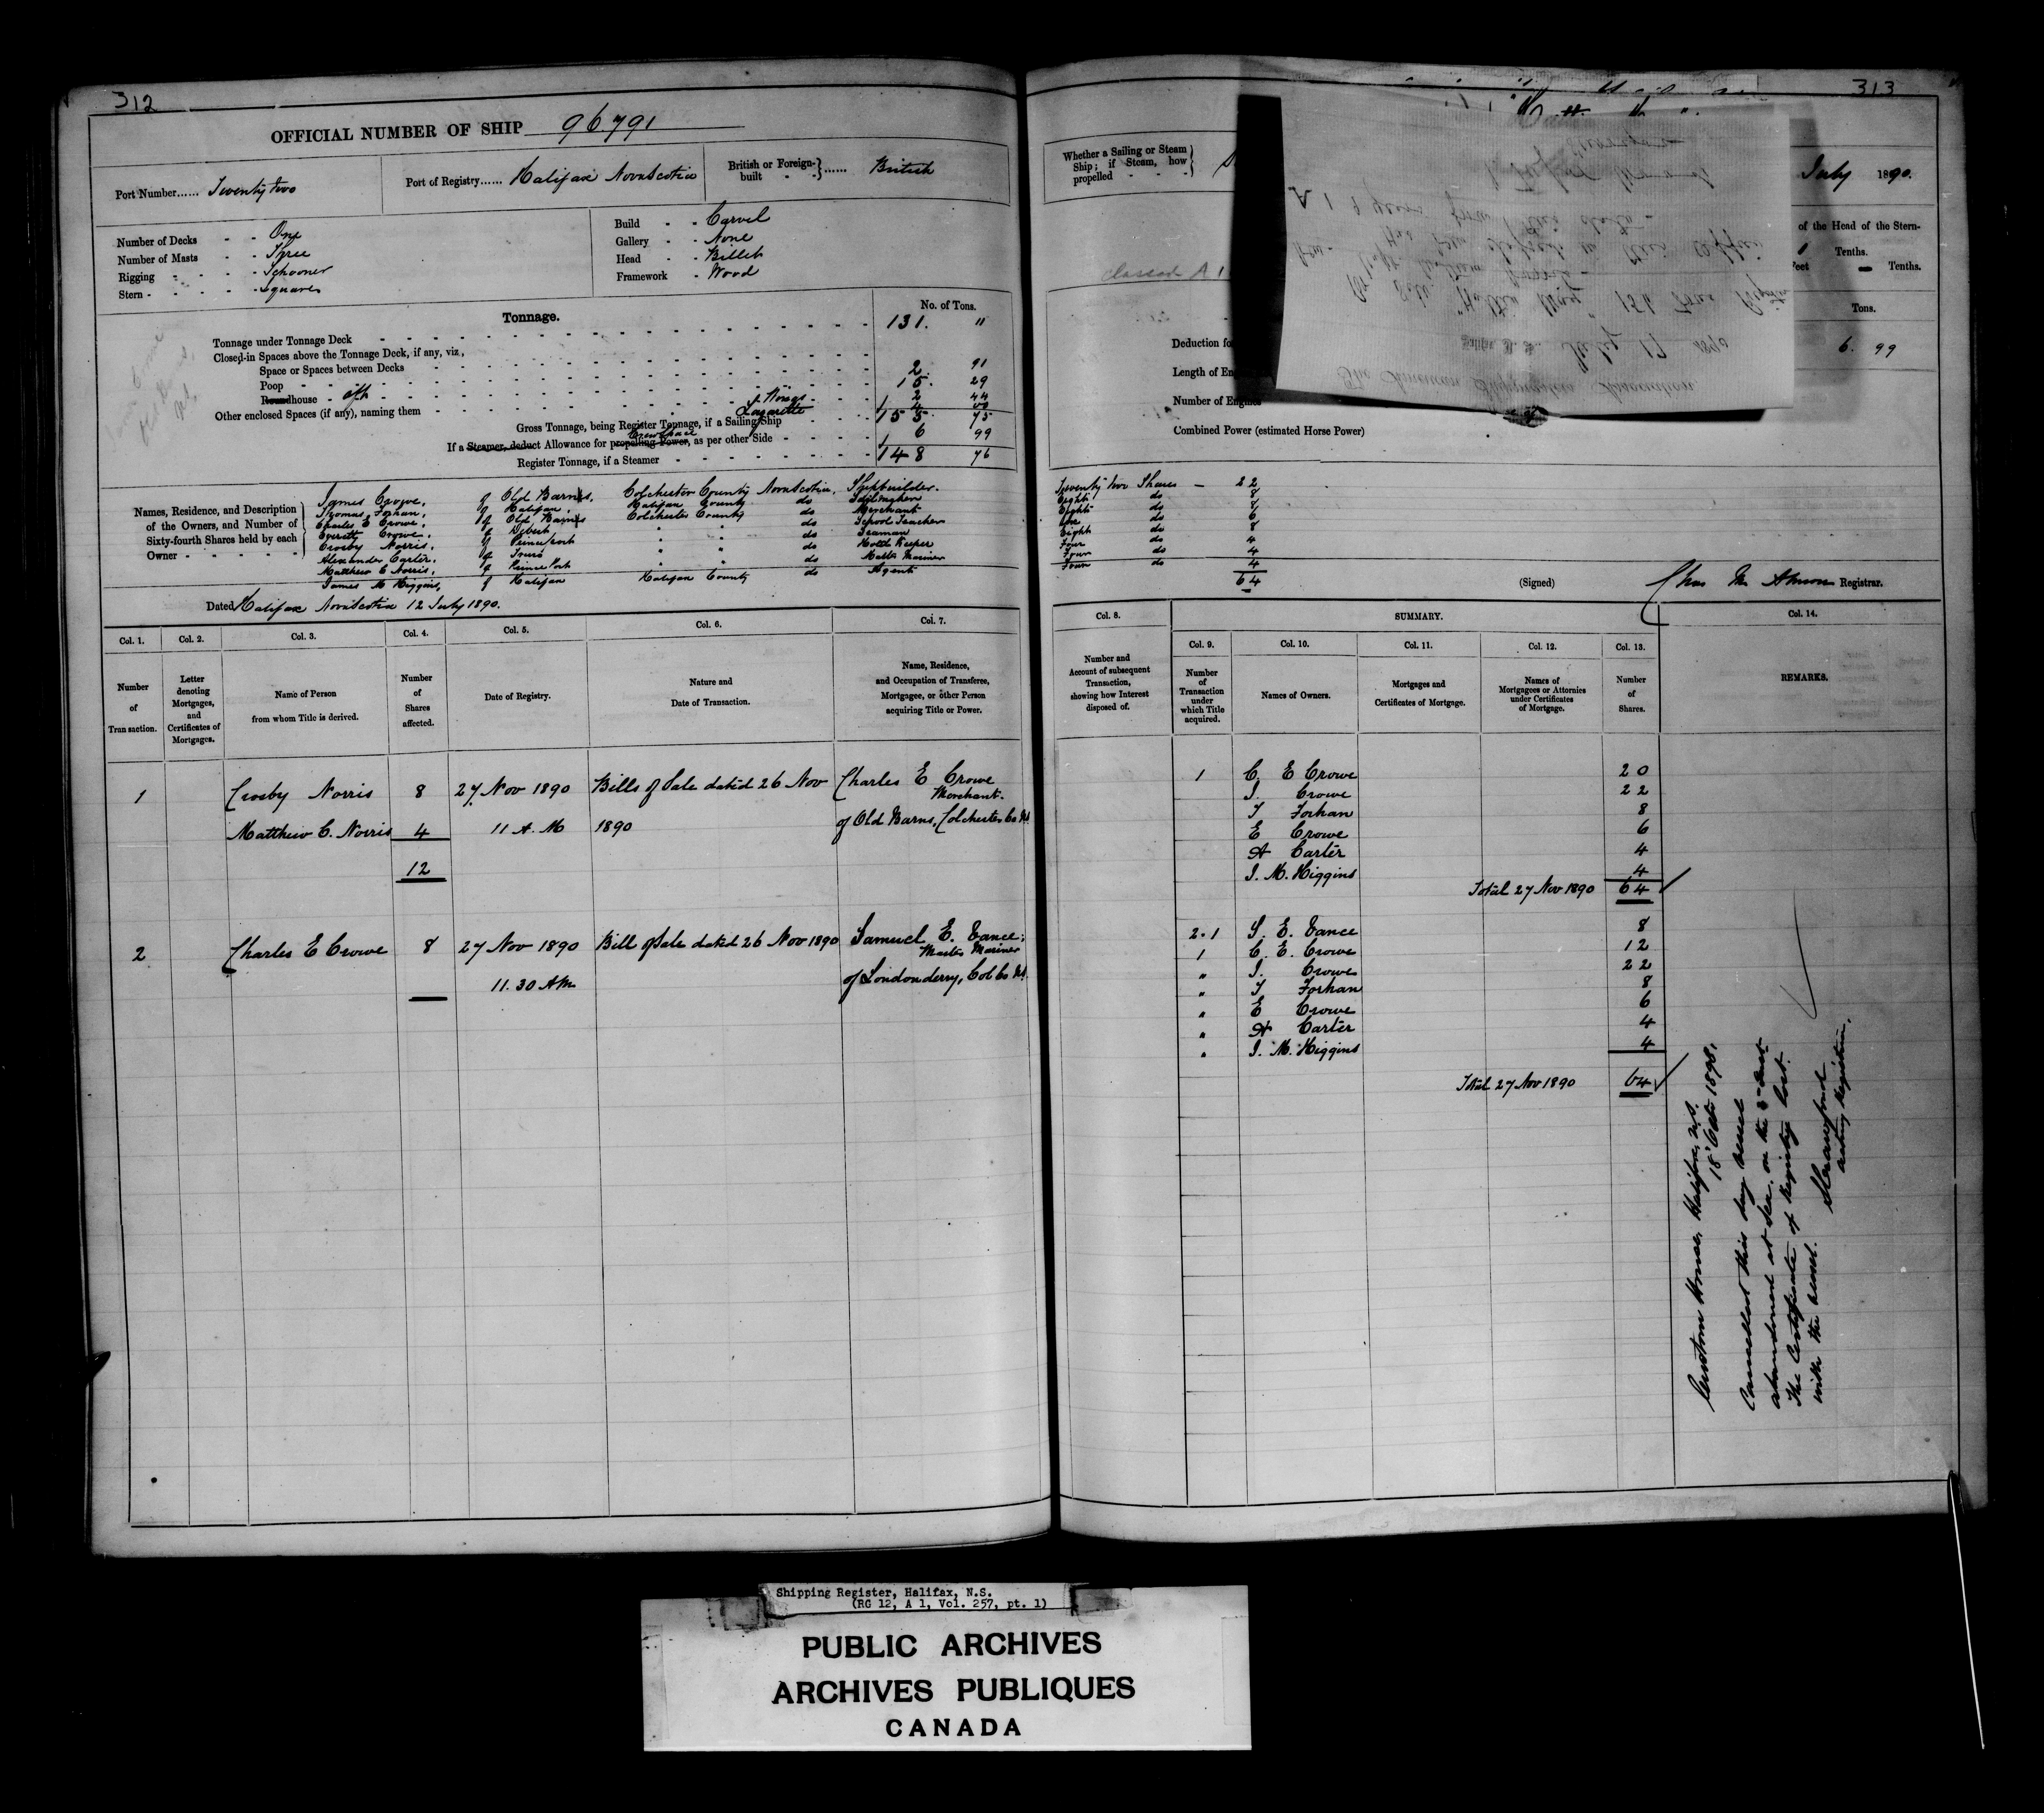 312
OFFICIAL NUMBER OF SHIP 96791
Port Number...... Twenty two
Port of Registry...... Halifax Nova Scotia
British or Foreign-built - - } ...... British
Number of Decks - - One
Number of Masts - - Three
Rigging - - - - Schooner
Stern - - - - - Square
Build - - Carvel
Gallery - - None
Head - - Billet
Framework - Wood
Tonnage.
No. of Tons.
Tonnage under Tonnage Deck 131. 11
Closed-in Spaces above the Tonnage Deck, if any, viz,
Space or Spaces between Decks
Poop 2. 91
Roundhouse - aft 15. 29
Other enclosed Spaces (if any), naming them 2 44
Lazarette
Gross Tonnage, being Register Tonnage, if a Sailing Ship 155. 75
If a Steamer, deduct Allowance for propelling Power, as per other Side - - - - 6 99
Crew Space
Register Tonnage, if a Steamer 148 76
Names, Residence, and Description of the Owners, and Number of Sixty-fourth Shares held by each Owner - - - - - -
James Crowe, of Old Barns, Colchester County Nova Scotia, Shipbuilder.
Thomas Forhan, of Halifax, Halifax County do Sailmaker
Charles E Crowe, of Old Barns Colchester County do Merchant
Everett Crowe, of Debert " " do School Teacher
Crosby Norris, " " do Seaman
Alexander Carter, of Truro " " do Hotel Keeper
Matthew C Norris, " " do Master Mariner
James M Higgins, of Halifax Halifax County do Agent
Dated Halifax Nova Scotia 12 July 1890.
Col. 1. Col. 2. Col. 3. Col. 4. Col. 5. Col. 6. Col. 7.
Number of Transaction.
Letter denoting Mortgages, and Certificates of Mortgages.
Name of Person from whom Title is derived.
Number of Shares affected.
Date of Registry.
Nature and Date of Transaction.
Name, Residence, and Occupation of Transferee, Mortgagee, or other Person acquiring Title or Power.
1 Crosby Norris 8 27 Nov 1890 Bills of Sale dated 26 Nov Charles E Crowe
Merchant.
Matthew C. Norris 4 11 A.M 1890 of Old Barns, Colchester Co NS
12
2 Charles E Crowe 8 27 Nov 1890 Bill of Sale dated 26 Nov 1890 Samuel E.
Master Mariner
11.30 AM of Londonderry, Col Co NS
313
Whether a Sailing or Steam Ship; if Steam, how propelled - - - -
July 1890.
of the Head of the Stern-
Tenths.
Feet Tenths.
classed A 1
Tons.
Deduction fo
6. 99
Length of En
Number of Engines
Combined Power (estimated Horse Power)
The American Shipmasters Association
Halifax N.S. July 17 1890
A 1 9 years from this date
Twenty two Shares - 22
Eight do 8
Eight do 8
Six do 6
Eight do 8
Four do 4
Four do 4
Four do 4
64
(Signed) Chas M Almon Registrar.
Col. 8.
SUMMARY.
Col. 14.
Col. 9. Col. 10. Col. 11. Col. 12. Col. 13.
Number and Account of subsequent Transaction, showing how Interest disposed of.
Number of Transaction under which Title acquired.
Names of Owners.
Mortgages and Certificates of Mortgage.
Names of Mortgagees or Attornies under Certificates of Mortgage.
Number of Shares.
REMARKS.
1 C. E Crowe 20
J. Crowe 22
T Forhan 8
E Crowe 6
A Carter 4
J. M. Higgins 4
Total 27 Nov 1890 64
2.1 S. E. 8
1 C. E. Crowe 12
" J. Crowe 22
" T Forhan 8
" E Crowe 6
" A Carter 4
" J. M. Higgins 4
Total 27 Nov 1890 64
Custom House, Halifax, N.S.
18 Octr 1898.
Cancelled this day vessel
abandoned at Sea, on the
The Certificate of Registry lost
with the vessel.
acting Registrar.
Shipping Register, Halifax, N.S.
(RG 12, A 1, Vol. 257, pt. 1)
PUBLIC ARCHIVES
ARCHIVES PUBLIQUES
CANADA